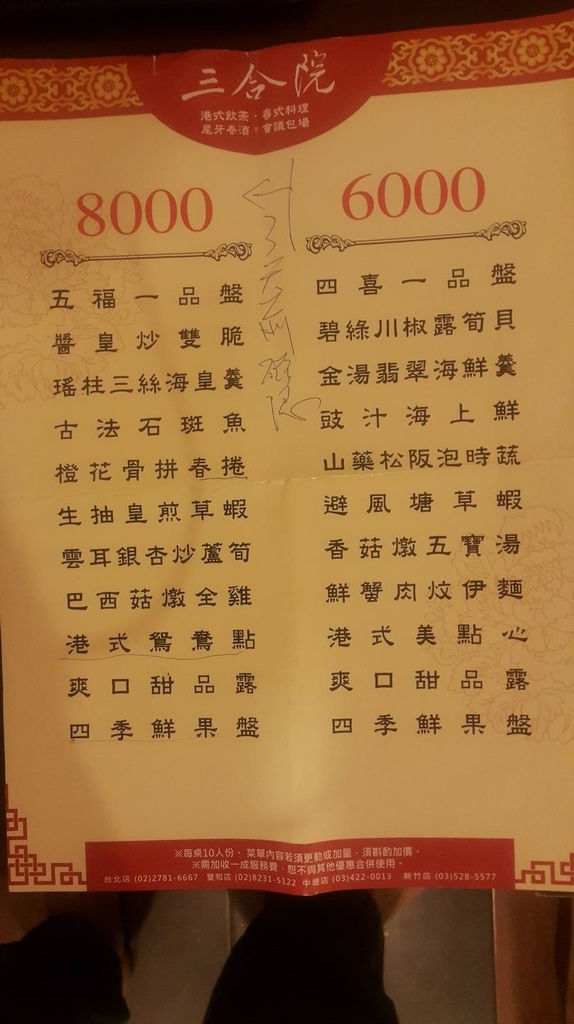 三合院
港式飲茶‧粵式料理
尾牙春酒‧會議包場
8000
五福一品盤
醬皇炒雙脆
瑤柱三絲海皇羹
古法石斑魚
橙花骨拼春捲
生抽皇煎草蝦
雲耳銀杏炒蘆筍
巴西菇燉全雞
港式鴛鴦點
爽口甜品露
四季鮮果盤
6000
四喜一品盤
碧綠川椒露筍貝
金湯翡翠海鮮羹
豉汁海上鮮
山藥松阪泡時蔬
避風塘草蝦
香菇燉五寶湯
鮮蟹肉炆伊麵
港式美點心
爽口甜品露
四季鮮果盤
※每桌10人份。菜單內容若須更動或加量，須斟酌加價。
※需加收一成服務費，恕不與其他優惠合併使用。
台北店 (02)2781-6667 雙和店 (02)8231-5122 中壢店 (03)422-0013 新竹店 (03)528-5577